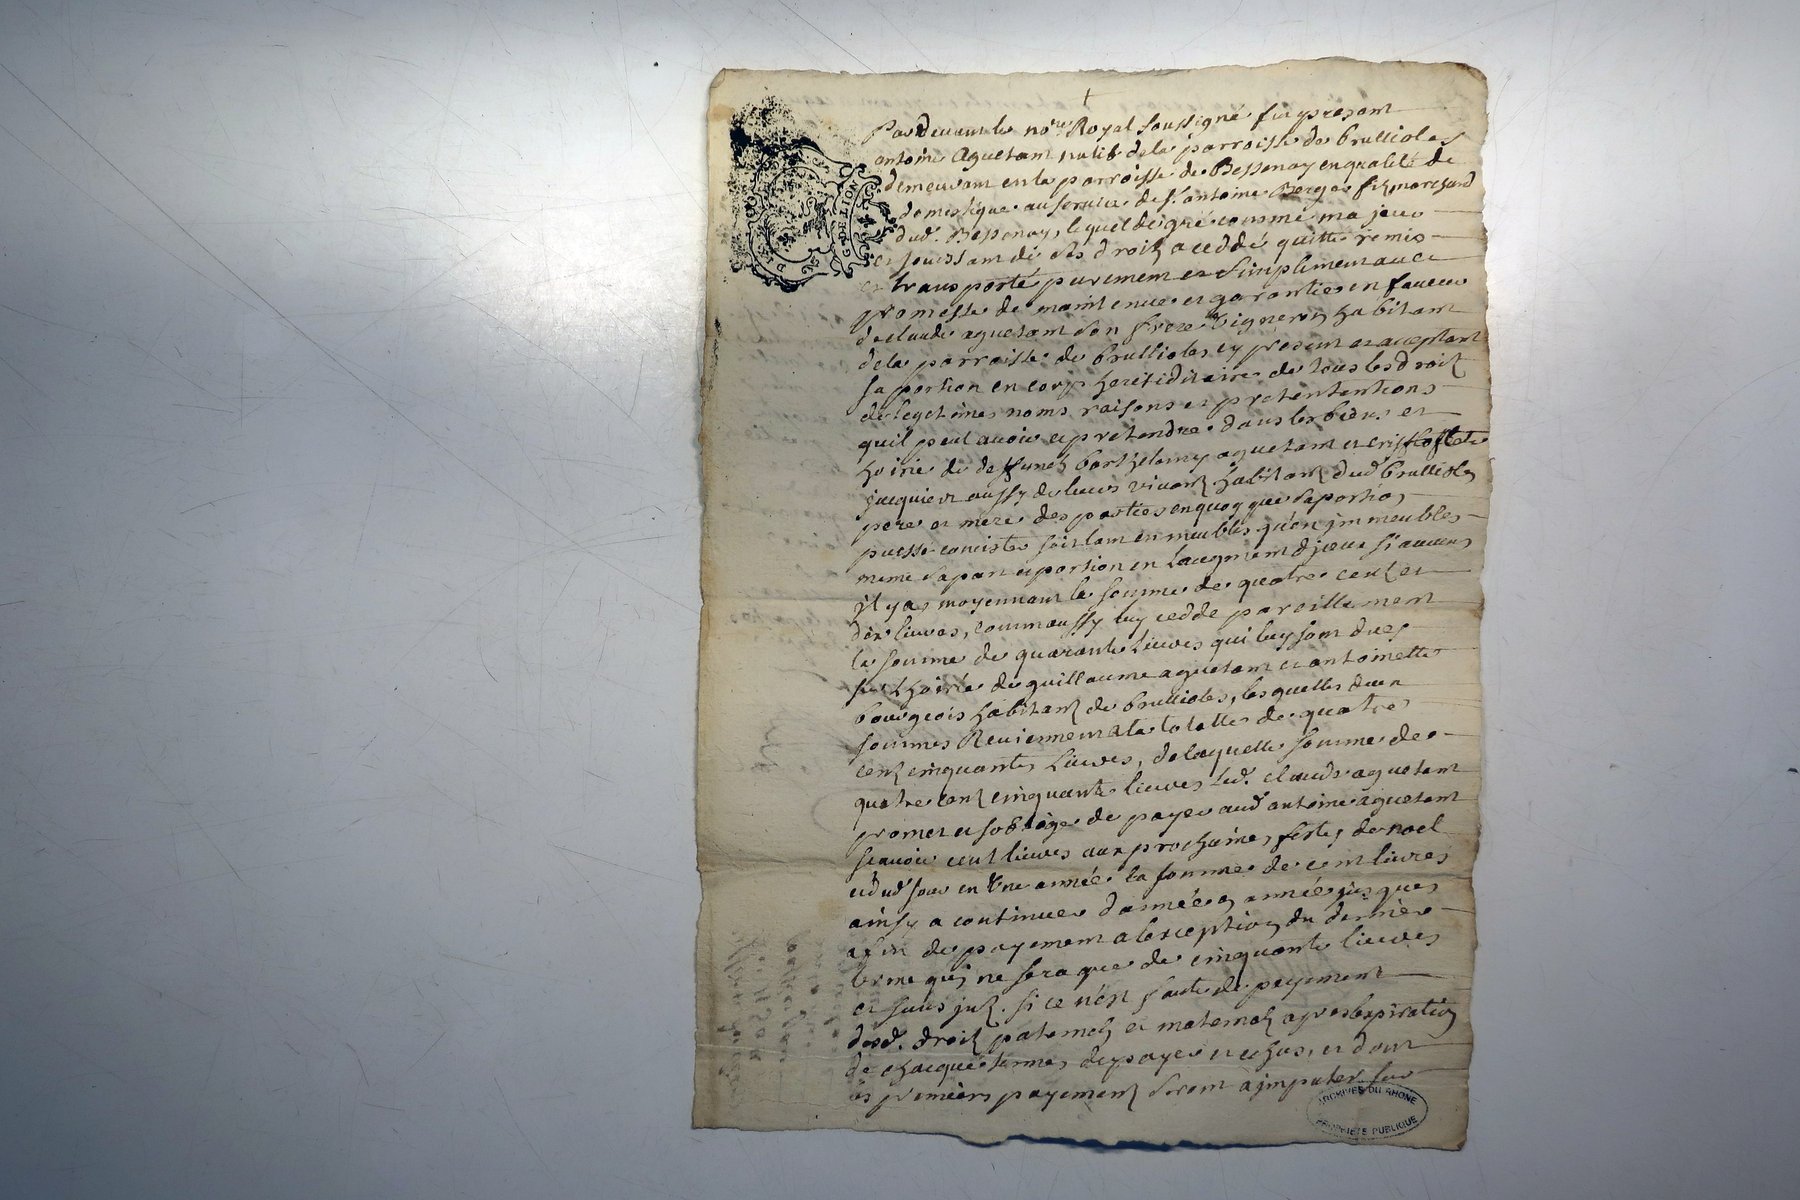 Pardevant le no.re Royal soussigné fut present
antoine aguetant natif de la parroisse de brullioles
demeurant en la parroisse de Bessenay en qualité de
domestique au service de s.r antoine Berger fils marchand
dud. Bessenay, lequel de gré comme majeur
et jouissant de ses droits a ceddé quitté remis
et transporté purement et simplement avec
promesse de maintenue et garanties en faveur
de claude aguetant son frere vigneron habitant
de la parroisse de brullioles cy present et acceptant
sa portion en corps hereiditaire de tous les droits
de legetimes noms raisons et pretententions
quil peut avoir et pretendre dans les biens et
hoirie de deffunts barthelemy aguetant et
jacquier aussy de leurs vivants habitants dud brullioles
pere et mere des parties en quoy que sa portion
puesse concister soit tant en meubles qu'en jmmeubles
meme sa part et portion en laugment djceux si aucuns
il y a, moyennant la somme de quatre cents et
dix livres, comm aussy luy cedde pareillement
la somme de quarante livres qui luy sont dues
sur lhoirie de guillaume aguetant et antoinette
bourgeois habitants de brullioles, lesquelles deux
sommes Reviennent a la totalle de quatre
cents cinquante livres, de laquelle somme de
quatre cents cinquante livres led. claude aguetant
promet et soblige de payer aud antoine aguetant
scavoir cent livres aux prochaines festes de noel
et dud jour en Une année la somme de cent livres
ainsy a continuer d'année en année jusques
a fin de payement a lexception du dernier
terme qui ne sera que de cinquante livres
et sans jnts. si ce n'est faute de payement
desd. droits paternels et maternels apres lexpiration
de chacque termes de payer et echus, et dont
les premiers payements seront a jmputer sur
G. DE LION
ARCHIVES DU RHONE
PROPRIETE PUBLIQUE